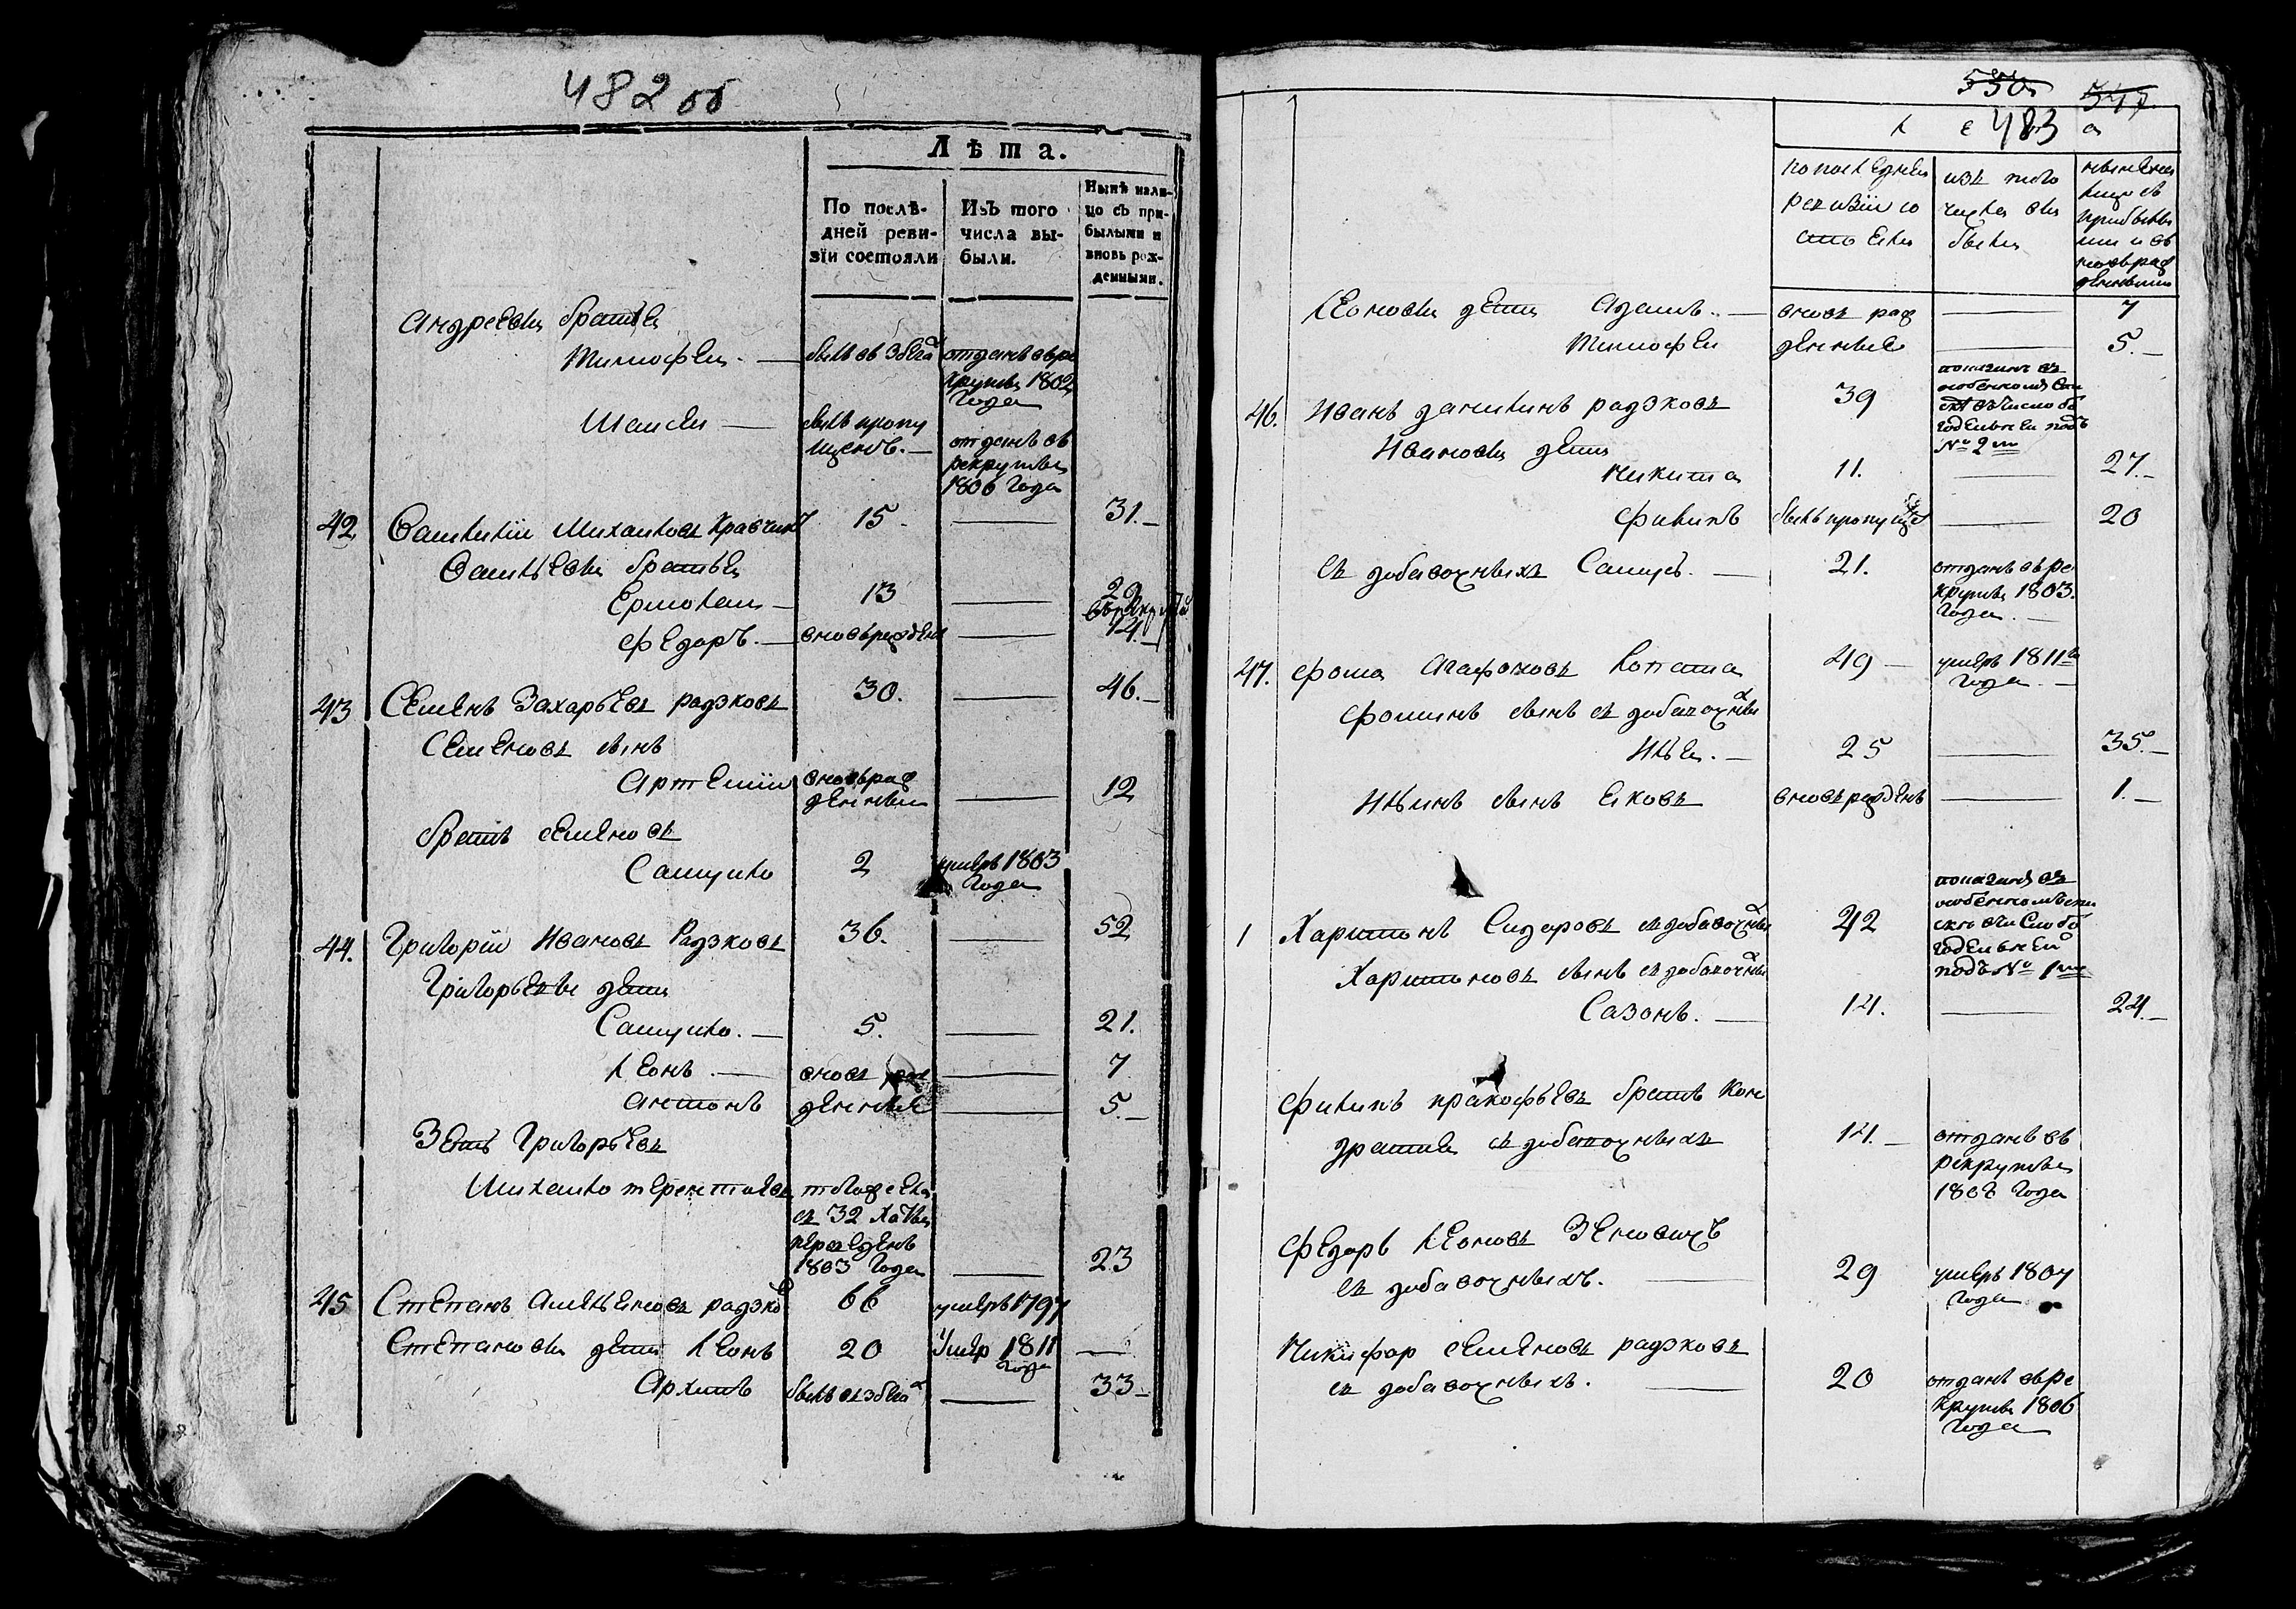 482 об
Лѣта.
По послѣ-
дней реви-
зїи состояли
Изъ того
числа вы-
были.
Нынѣ нали-
цо съ при-
былыми и
вновь рож-
денными.
Андреевы братья
Тимофей. — былъ въ отданъ въ ре
круты 1802
Года
былъ пропу
щенъ. — отданъ въ
рекруты
1806 Года
42 Михайловъ 15 — 31. —
братья
Ермолай — 13 — 29
Федоръ. — вновьрожденъ — 14. —
43 Семенъ Захарьевъ радзковъ 30. — 46. —
Семеновъ сынъ
Артемїй вновьрож
денный — 12
братъ Семеновъ
Самуйло 2 умеръ 1803
Года
44. Григорїй Ивановъ Радзковъ 36. — 52
Григорьевы дети
Самуйло. — 5. — 21.
Леонъ. — вновь рож — 7
Антонъ денные — 5. —
Зять Григорьевъ
Михайло
съ 32 Хаты
переведенъ
1803 Года — 23
45 Степанъ радзко 66 умеръ 1797
Степановы дети Леонъ 20 Умер 1811
Года —
Архипъ былъ — 33 —
550 547
Л е 483 а
по последней
ревизїи со
стояли
изъ того
числа вы
были
ныне на
лицо съ
прибылы
ми и въ
новьрож
денными
Леоновы дети Адамъ. — вновь рож — 7
Тимофей денные — 5. —
46. Иванъ Данилинъ радзковъ 39 показанъ въ
особенномъ спи
ске въ числе бо
годельней подъ
№ 2 м
Ивановы дети
Никита 11. — 27. —
Филипъ былъ пропущен — 20
съ добавочныхъ Самусъ. — 21. отданъ въ ре
круты 1803.
Года. —
47. Фома Агафоновъ Лопата 49 — умеръ 1811 го
Года. —
Фоминъ сынъ съ добавочных
Илья. — 25 — 35. —
Ильинъ сынъ Яковъ вновьрожденъ — 1. —
1 Харитонъ Сидоровъ съ добавочных 42 показанъ въ
особенномъ спи
ске въ числе бо
годельней
подъ № 1 мъ
Харитоновъ сынъ съ добавочных
Сазонъ. — 14. — 24. —
Филипъ прокофьевъ братъ Кон
дратия съ добавочныхъ 14. — отданъ въ
рекруты
Года
Федоръ Леоновъ Зеновичъ
съ добавочныхъ. — 29 умеръ 1807
Года
Никифор Семеновъ радзковъ
съ добавочныхъ. — 20 отданъ въ ре
круты 1806
Года